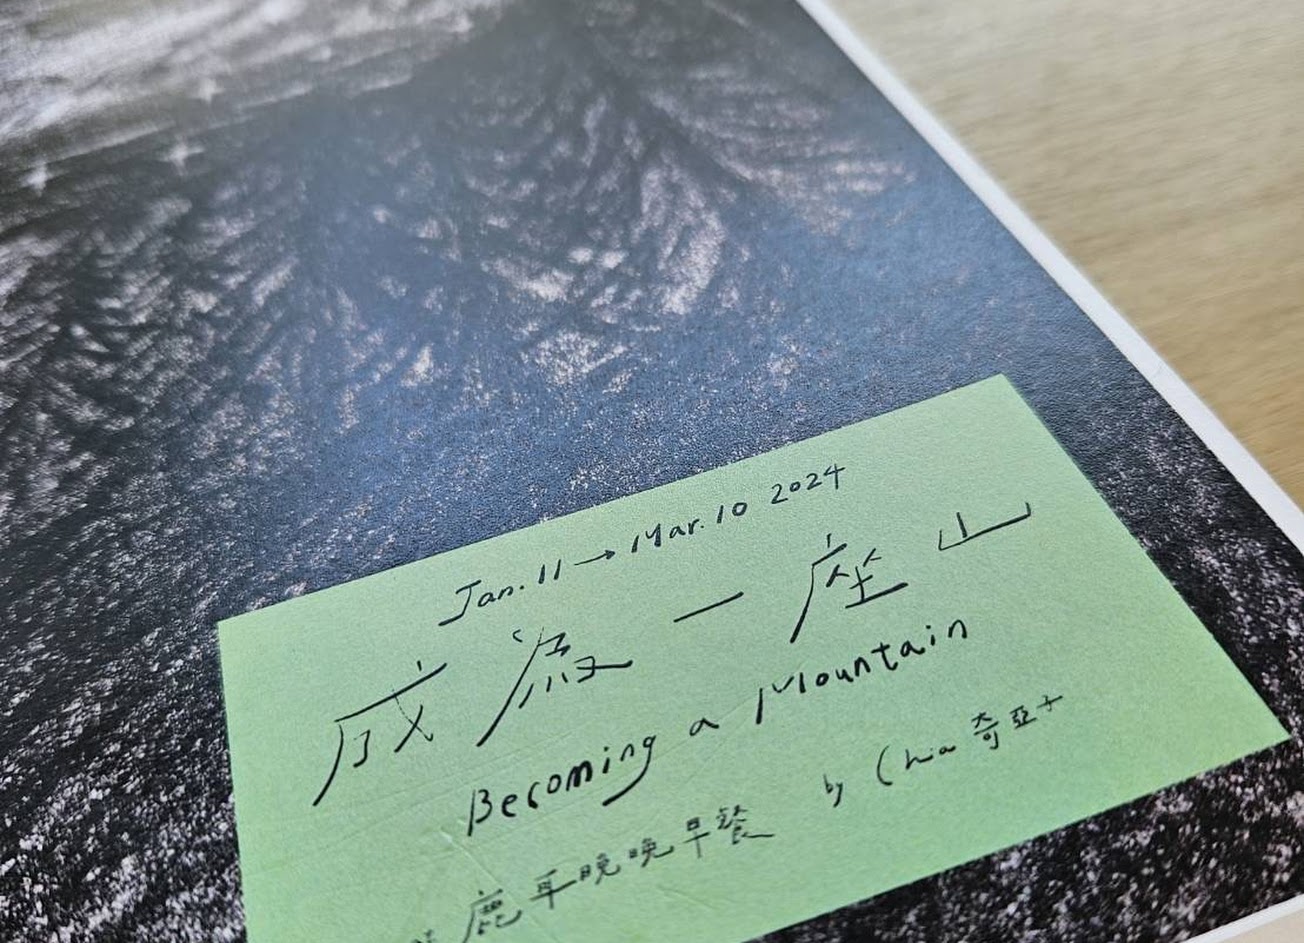 Jan. 11 → Mar. 10 2024
成為一座山
Becoming a Mountain
by Chia 奇亞子
鹿耳晚晚早餐